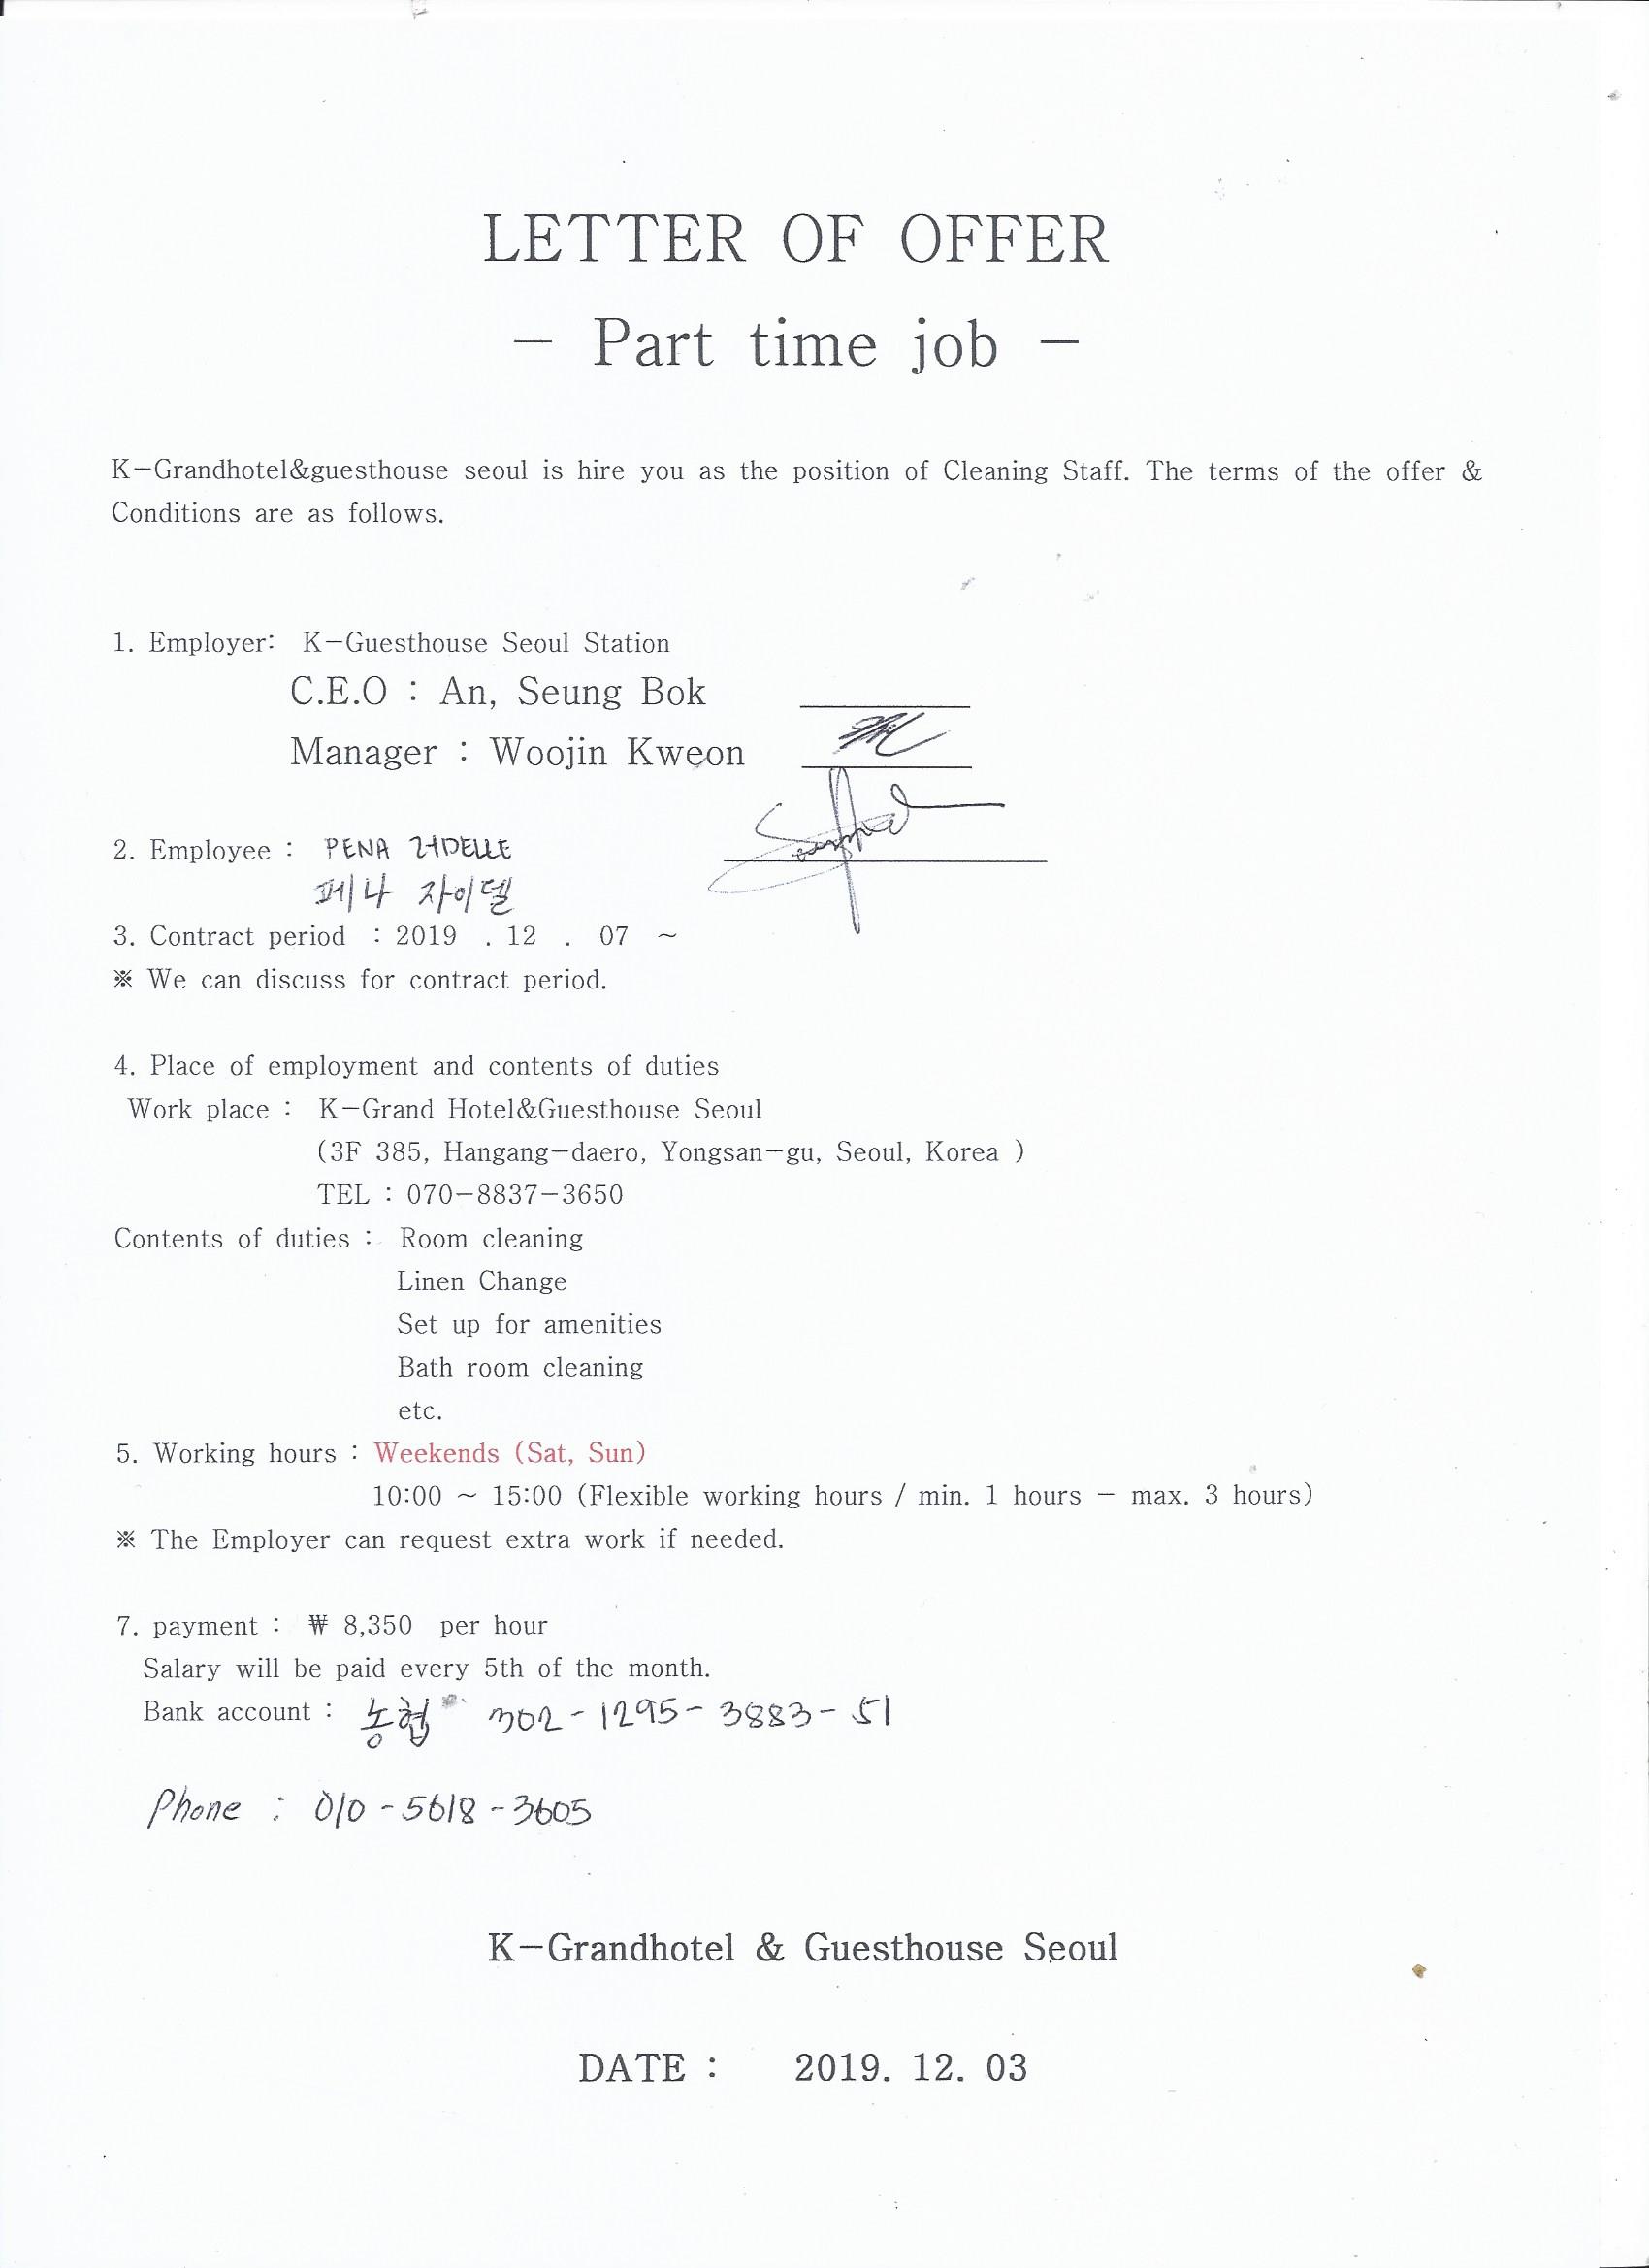 LETTER OF OFFER
- Part time job -
K-Grandhotel&guesthouse seoul is hire you as the position of Cleaning Staff. The terms of the offer &
Conditions are as follows.
1. Employer: K-Guesthouse Seoul Station
C.E.O : An, Seung Bok
Manager : Woojin Kweon
2. Employee : PENA
페나 자이델
3. Contract period : 2019 . 12 . 07 ~
※ We can discuss for contract period.
4. Place of employment and contents of duties
Work place : K-Grand Hotel&Guesthouse Seoul
(3F 385, Hangang-daero, Yongsan-gu, Seoul, Korea )
TEL : 070-8837-3650
Contents of duties : Room cleaning
Linen Change
Set up for amenities
Bath room cleaning
etc.
5. Working hours : Weekends (Sat, Sun)
10:00 ~ 15:00 (Flexible working hours / min. 1 hours - max. 3 hours)
※ The Employer can request extra work if needed.
7. payment : ₩ 8,350 per hour
Salary will be paid every 5th of the month.
Bank account : 농협 302-1295-3883-51
Phone : 010-5618-3605
K-Grandhotel & Guesthouse Seoul
DATE : 2019. 12. 03